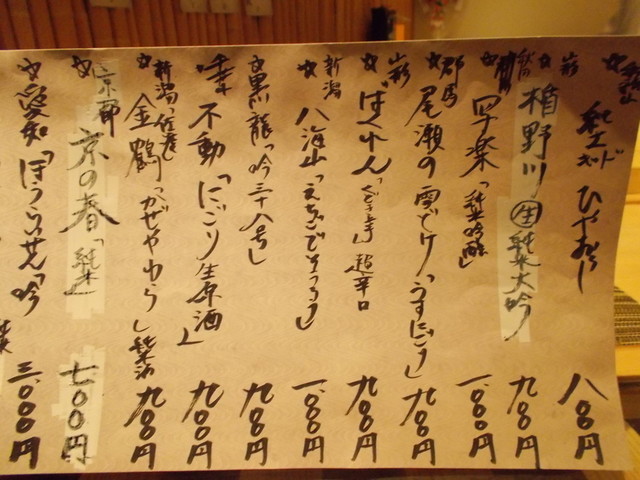 純米 ひやおろし 八〇〇円
山形 楯野川 生 純米大吟 九〇〇円
秋田 「純米吟醸」 一、〇〇〇円
群馬 尾瀬の雪どけ「うすにごり」 九〇〇円
山形 ばくれん 超辛口 九〇〇円
新潟 八海山「えちごで候」 一、〇〇〇円
黒龍「吟三十八号」 九〇〇円
千葉 不動「にごり生原酒」 九〇〇円
新潟(佐渡) 金鶴「かぜやわらか」純米酒 九〇〇円
京都 京の春「純米」 七〇〇円
愛知 ほうらいせん「吟 三、〇〇〇円